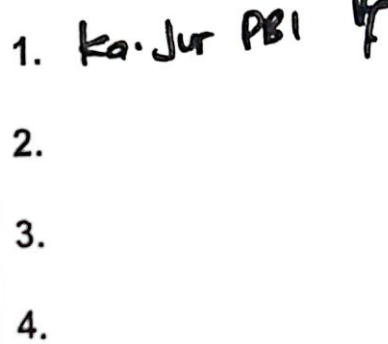 1. Ka. Jur PBI
2.
3.
4.